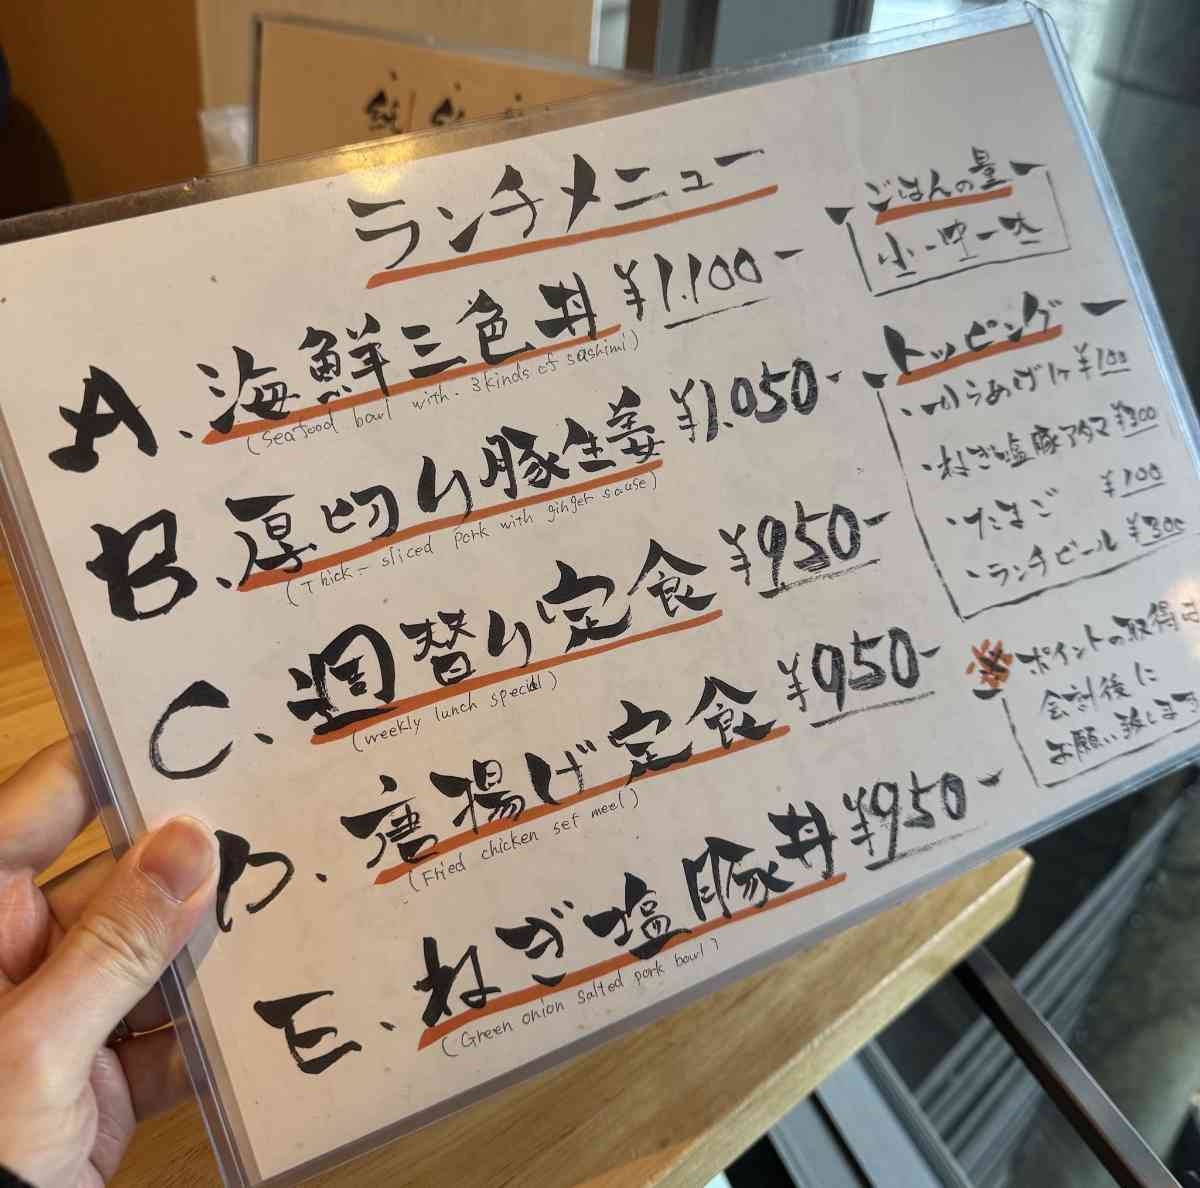 ランチメニュー
A. 海鮮三色丼 ¥1.100-
(Seafood bowl with. 3kinds of sashimi)
B. 厚切り豚生姜 ¥1.050-
(Thick- sliced pork with ginger sause)
C. 週替り定食 ¥950-
(weekly lunch special)
D. 唐揚げ定食 ¥950-
(Fried chicken set meel)
E. ねぎ塩豚丼 ¥950-
(Green onion salted pork bowl)
ごはんの量
小-中-大
トッピング
・からあげ1ヶ ¥100
・ねぎ塩豚アタマ ¥300
・たまご ¥100
・ランチビール ¥300
※ ポイントの取得は
会計後に
お願い致します